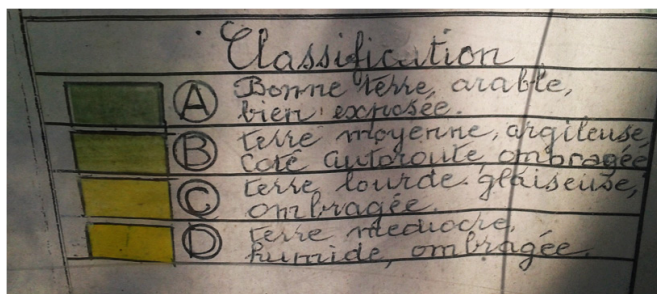 Classification
A Bonne terre, arable,
bien exposée.
B terre moyenne, argileuse
Coté autoroute, ombragée
C terre lourde glaiseuse,
ombragée.
D terre mediocre,
humide, ombragée.